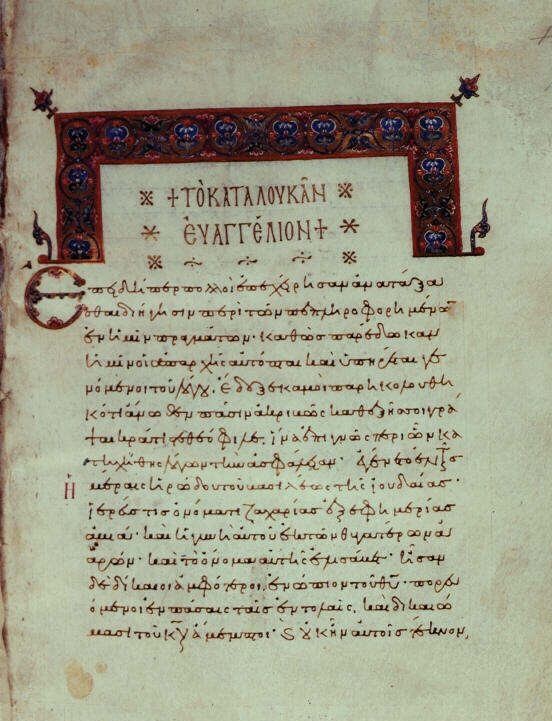 +ΤὸΚΑΤΑΛΟΥΚᾶΝ
ἘΥΑΓΓΈΛΙΟΝ+
Επειδήπερ πολλοὶ ἐπεχείρησαν ἀνατάξα
σθαι διήγησιν περὶ τῶν πεπληροφορημένων
ἐν ἡμῖν πραγμάτων· καθὼς παρέδωκαν
ἡμῖν οἱ ἀπαρχῆς αὐτόπται καὶ ὑπηρέται γε
νόμενοι τοῦ λόγου, ἔδοξε κἀμοὶ παρηκολουθη
κότι ἄνωθεν πᾶσιν ἀκριβῶς καθεξῆς σοι γρά
ψαι κράτιστε θεόφιλε, ἵνα ἐπιγνῷς περὶ ὧν κα
τηχήθης λόγων τὴν ἀσφάλειαν· Ἐγένετο ἐν ταῖς
ἡμέραις ἡρώδου τοῦ βασιλέως τῆς ἰουδαίας·
ἱερεύς τις ὀνόματι ζαχαρίας ἐξ ἐφημερίας
ἀβιά· καὶ ἡ γυνὴ αὐτοῦ ἐκ τῶν θυγατέρων ἀ
αρών· καὶ τὸ ὄνομα αὐτῆς ἐλισάβετ· ἦσαν
δὲ δίκαιοι ἀμφότεροι, ἐνώπιον τοῦ θυ· πορευ
όμενοι ἐν πάσαις ταῖς ἐντολαῖς, καὶ δικαιώ
μασι τοῦ κυ ἄμεμπτοι· Ὀυκ ἦν αὐτοῖς τέκνον,